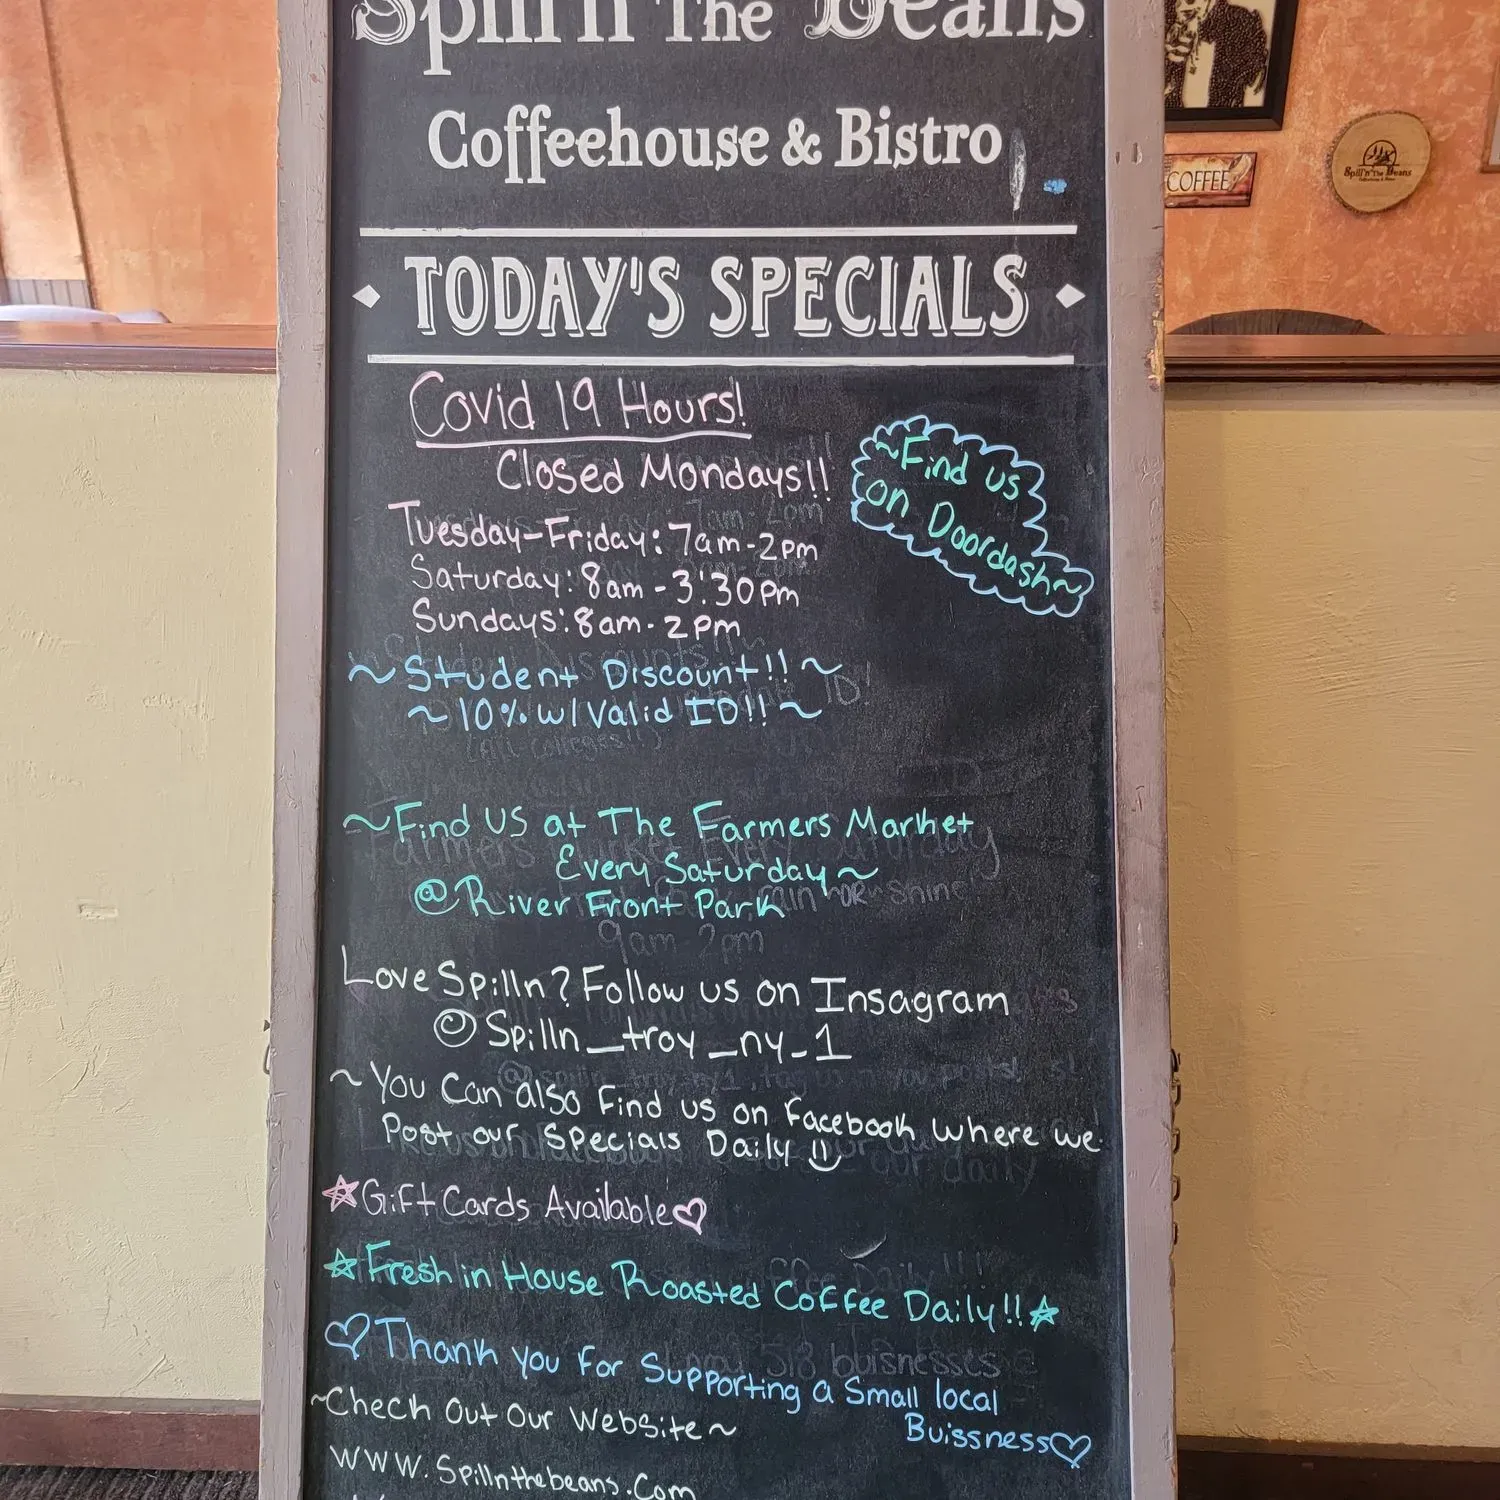 Spill'n The Beans
Coffeehouse & Bistro
TODAY'S SPECIALS
Covid 19 Hours!
Closed Mondays!!
Tuesday-Friday: 7am-2pm
Saturday: 8am-3:30pm
Sundays: 8am-2pm
~Find us
on Doordash~
~Student Discount!!~
~10% w/Valid ID!!~
~Find us at The Farmers Market
Every Saturday~
@River Front Park
Love Spilln? Follow us on Insagram
@Spilln_troy_ny_1
~You Can also Find us on Facebook where we
Post our Specials Daily
Gift Cards Available
Fresh in House Roasted Coffee Daily!!
Thank you For Supporting a Small local
Buissness
~Check Out Our Website~
www.Spillnthebeans.com
COFFEE
Spill'n The Beans